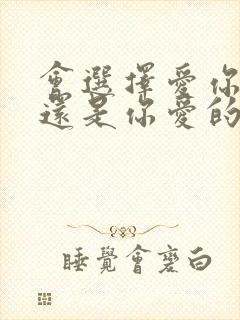 會選擇愛你
還是你愛的
睡覺會變白